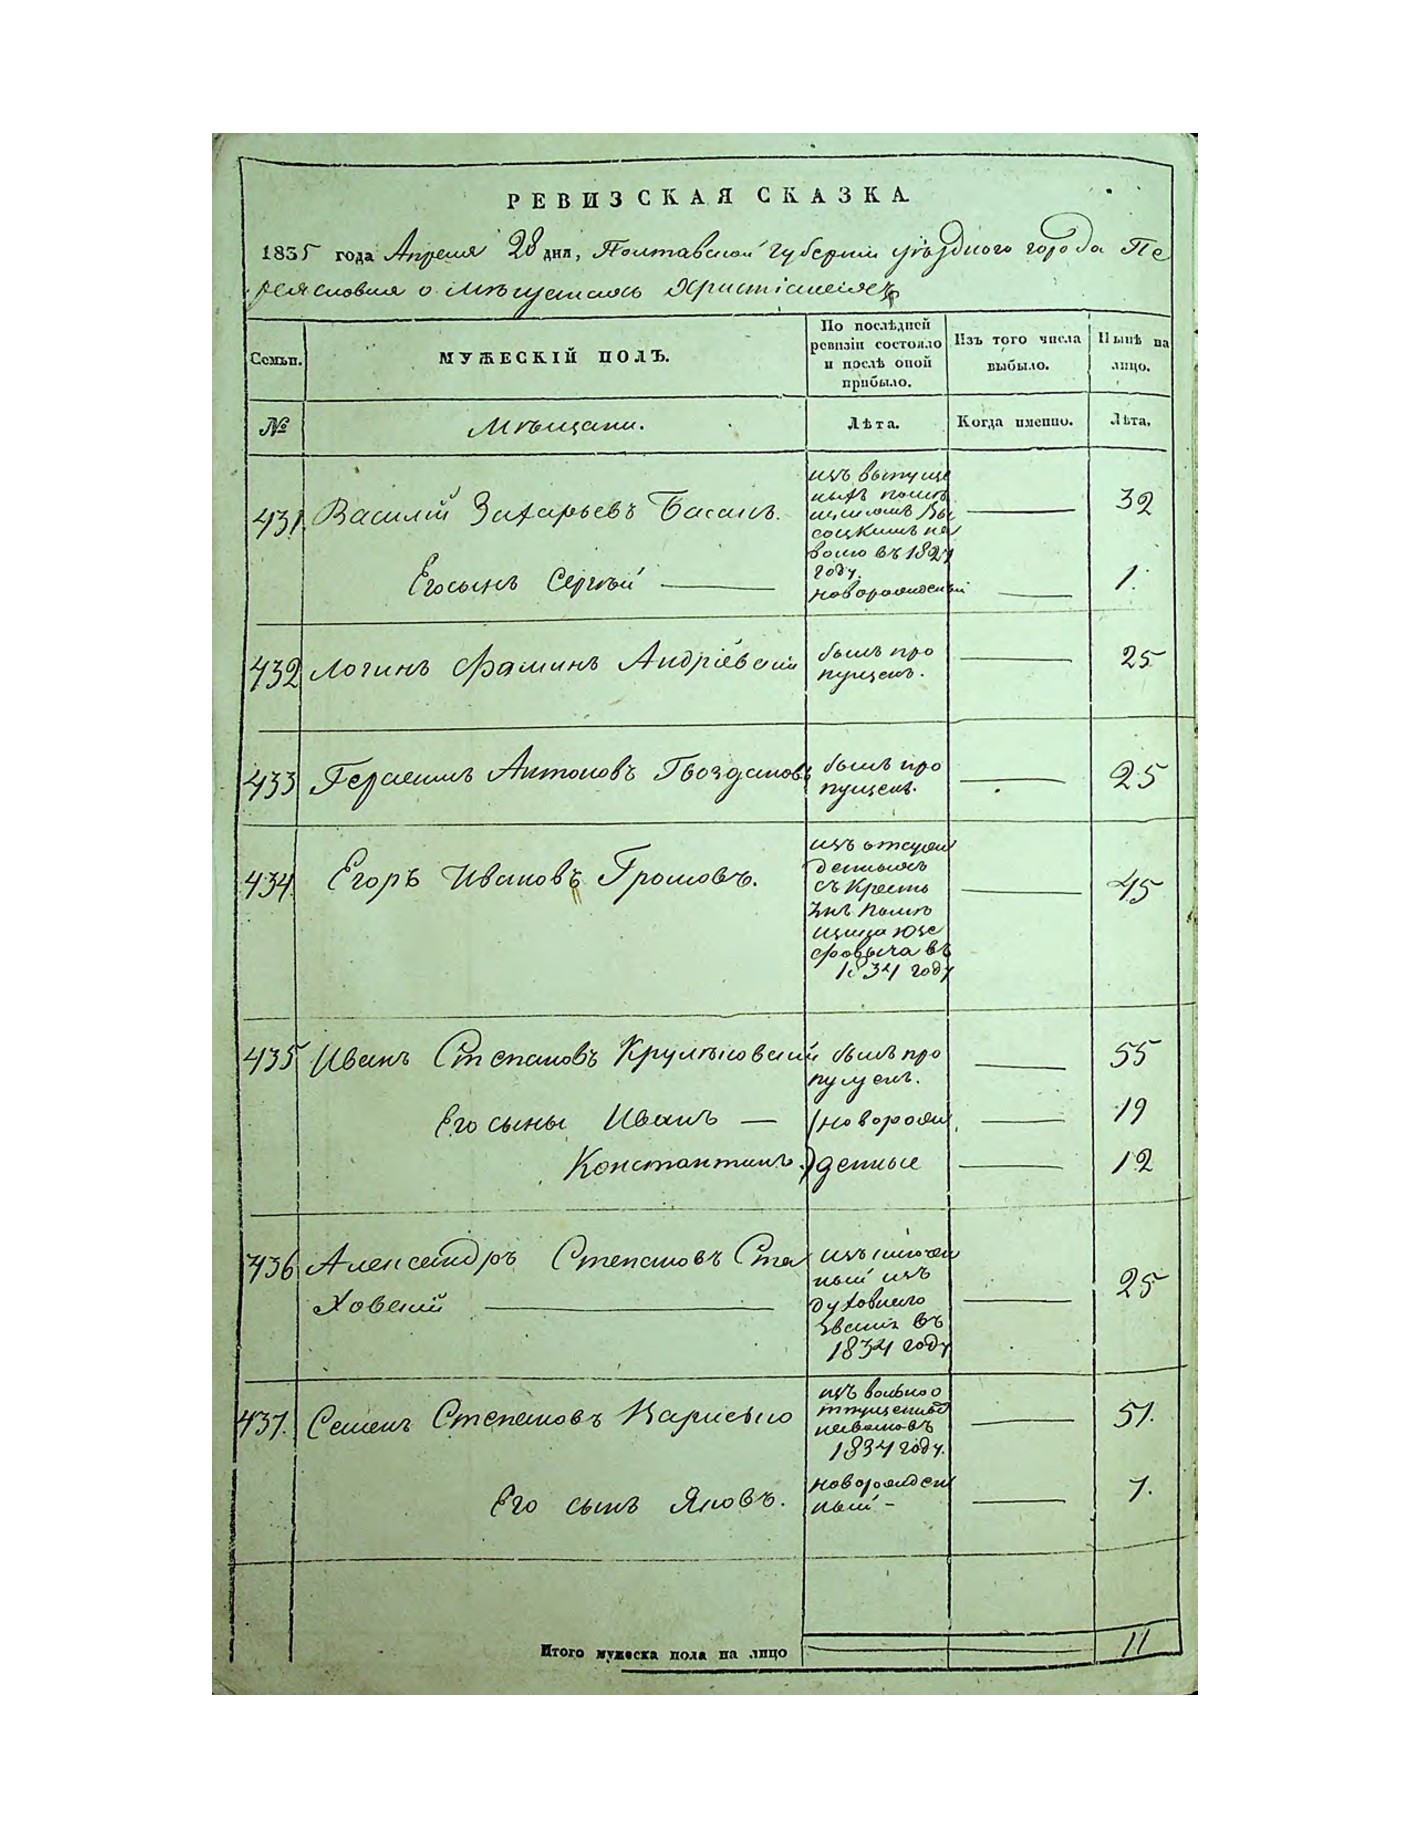 РЕВИЗСКАЯ СКАЗКА
1835 года Апреля 28 дня, Полтавской губернии уѣзднаго города Пе
реясловля о мѣщанахъ Христіанехъ
Семьи.
МУЖЕСКІЙ ПОЛЪ.
По послѣдней
ревизіи состояло
и послѣ оной
прибыло.
Изъ того числа
выбыло.
Нынѣ на
лицо.
№
Мѣщани.
Лѣта.
Когда именно.
Лѣта.
431. Василій Захарьевъ Басанъ.
изъ выпуще
ныхъ помѣ
щикомъ Вы
соцкимъ на
волю въ 1827
году.
32
Его сынъ Сергѣй
новорожденный
1.
432 Логинъ Фаминъ Андріевскій
былъ про
пущенъ.
25
433 Герасимъ Антоновъ Гвоздановъ
былъ про
пущенъ.
25
434. Егоръ Ивановъ Громовъ.
изъ отсуж
денныхъ
съ Кресть
янъ Помѣ
щица Юзе
фовыча въ
1834 году
45
435 Иванъ Степановъ
былъ про
пущенъ.
55
Его сыны Иванъ
новорож
19
Константинъ.
денные
12
436 Александръ Степановъ Ста
ховскій
изъ
ный изъ
духовнаго
званія въ
1834 году
25
437. Семенъ Степановъ
изъ вольно о
тпущенныхъ
1834 году.
51.
Его сынъ Яковъ.
новорожден
ный
7.
Итого мужеска пола на лицо
11